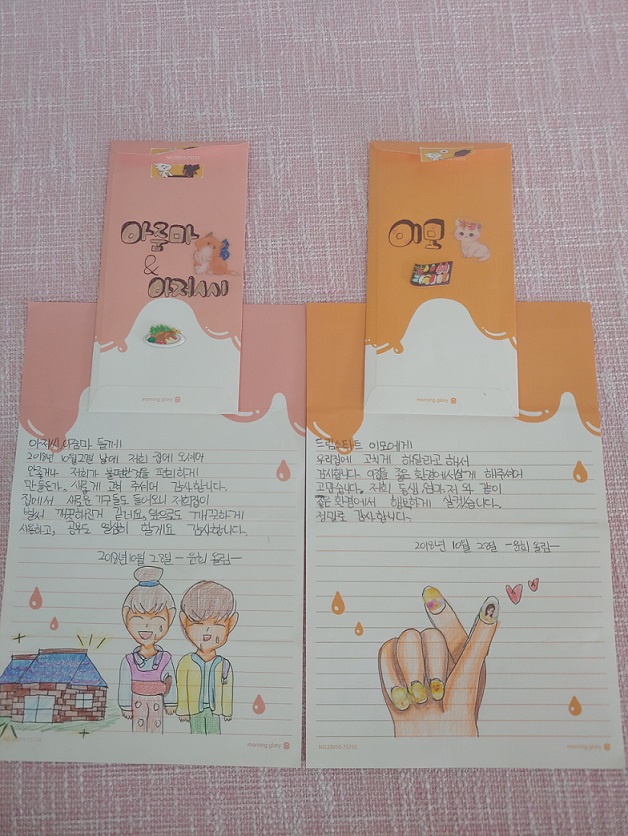 아줌마
&
아저씨
morning glory
이모
morning glory
아저씨, 아줌마 들께
2018년 10월 2일 날에 저희 집에 오셔서
저희가 불편한것을 편하게
만든든가. 새롭게 고쳐 주셔서 감사합니다.
집에서 새로운 가구들도 들어오니 저희집이
벌써 깨끗해진거 같네요. 앞으로도 깨끗하게
사용하고, 공부도 열심히 할게요 감사합니다.
2018년 10월 2일 - 윤희 올림 -
morning glory
드림스타트 이모에게
우리집에 고치게 해달라고 해서
감사합니다. 이렇게 좋은 환경에서 살게 해주셔서
고맙습니다. 저희 동생, 엄마, 저 와 같이
좋은 환경에서 행복하게 살겠습니다.
정말로 감사합니다.
2018년 10월 2일 - 윤희 올림 -
morning glory